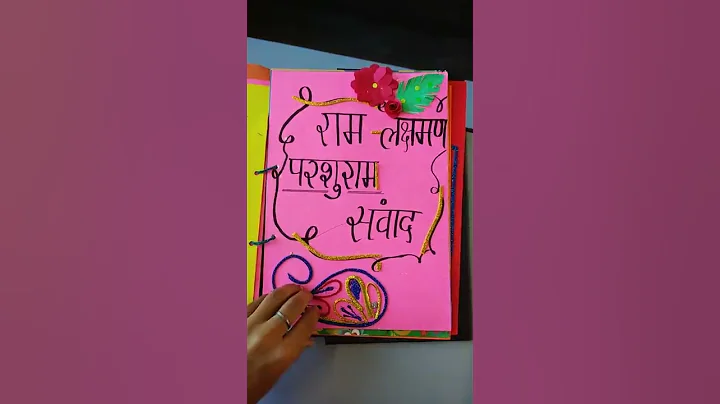 राम - लक्षमण
परशुराम
संवाद